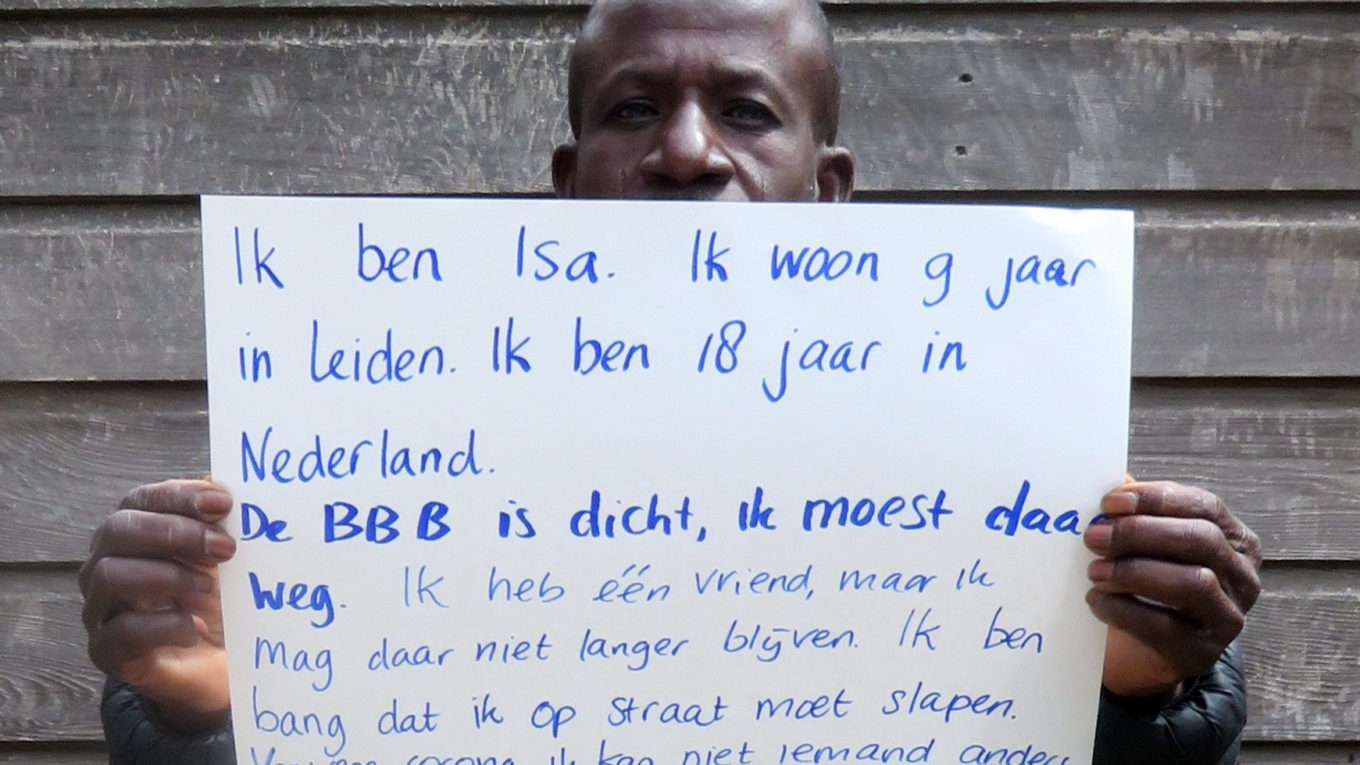 Ik ben Isa. Ik woon 9 jaar
in Leiden. Ik ben 18 jaar in
Nederland.
De BBB is dicht, ik moest daar
weg. Ik heb één vriend, maar ik
mag daar niet langer blijven. Ik ben
bang dat ik op straat moet slapen.
corona ik kan niet iemand anders